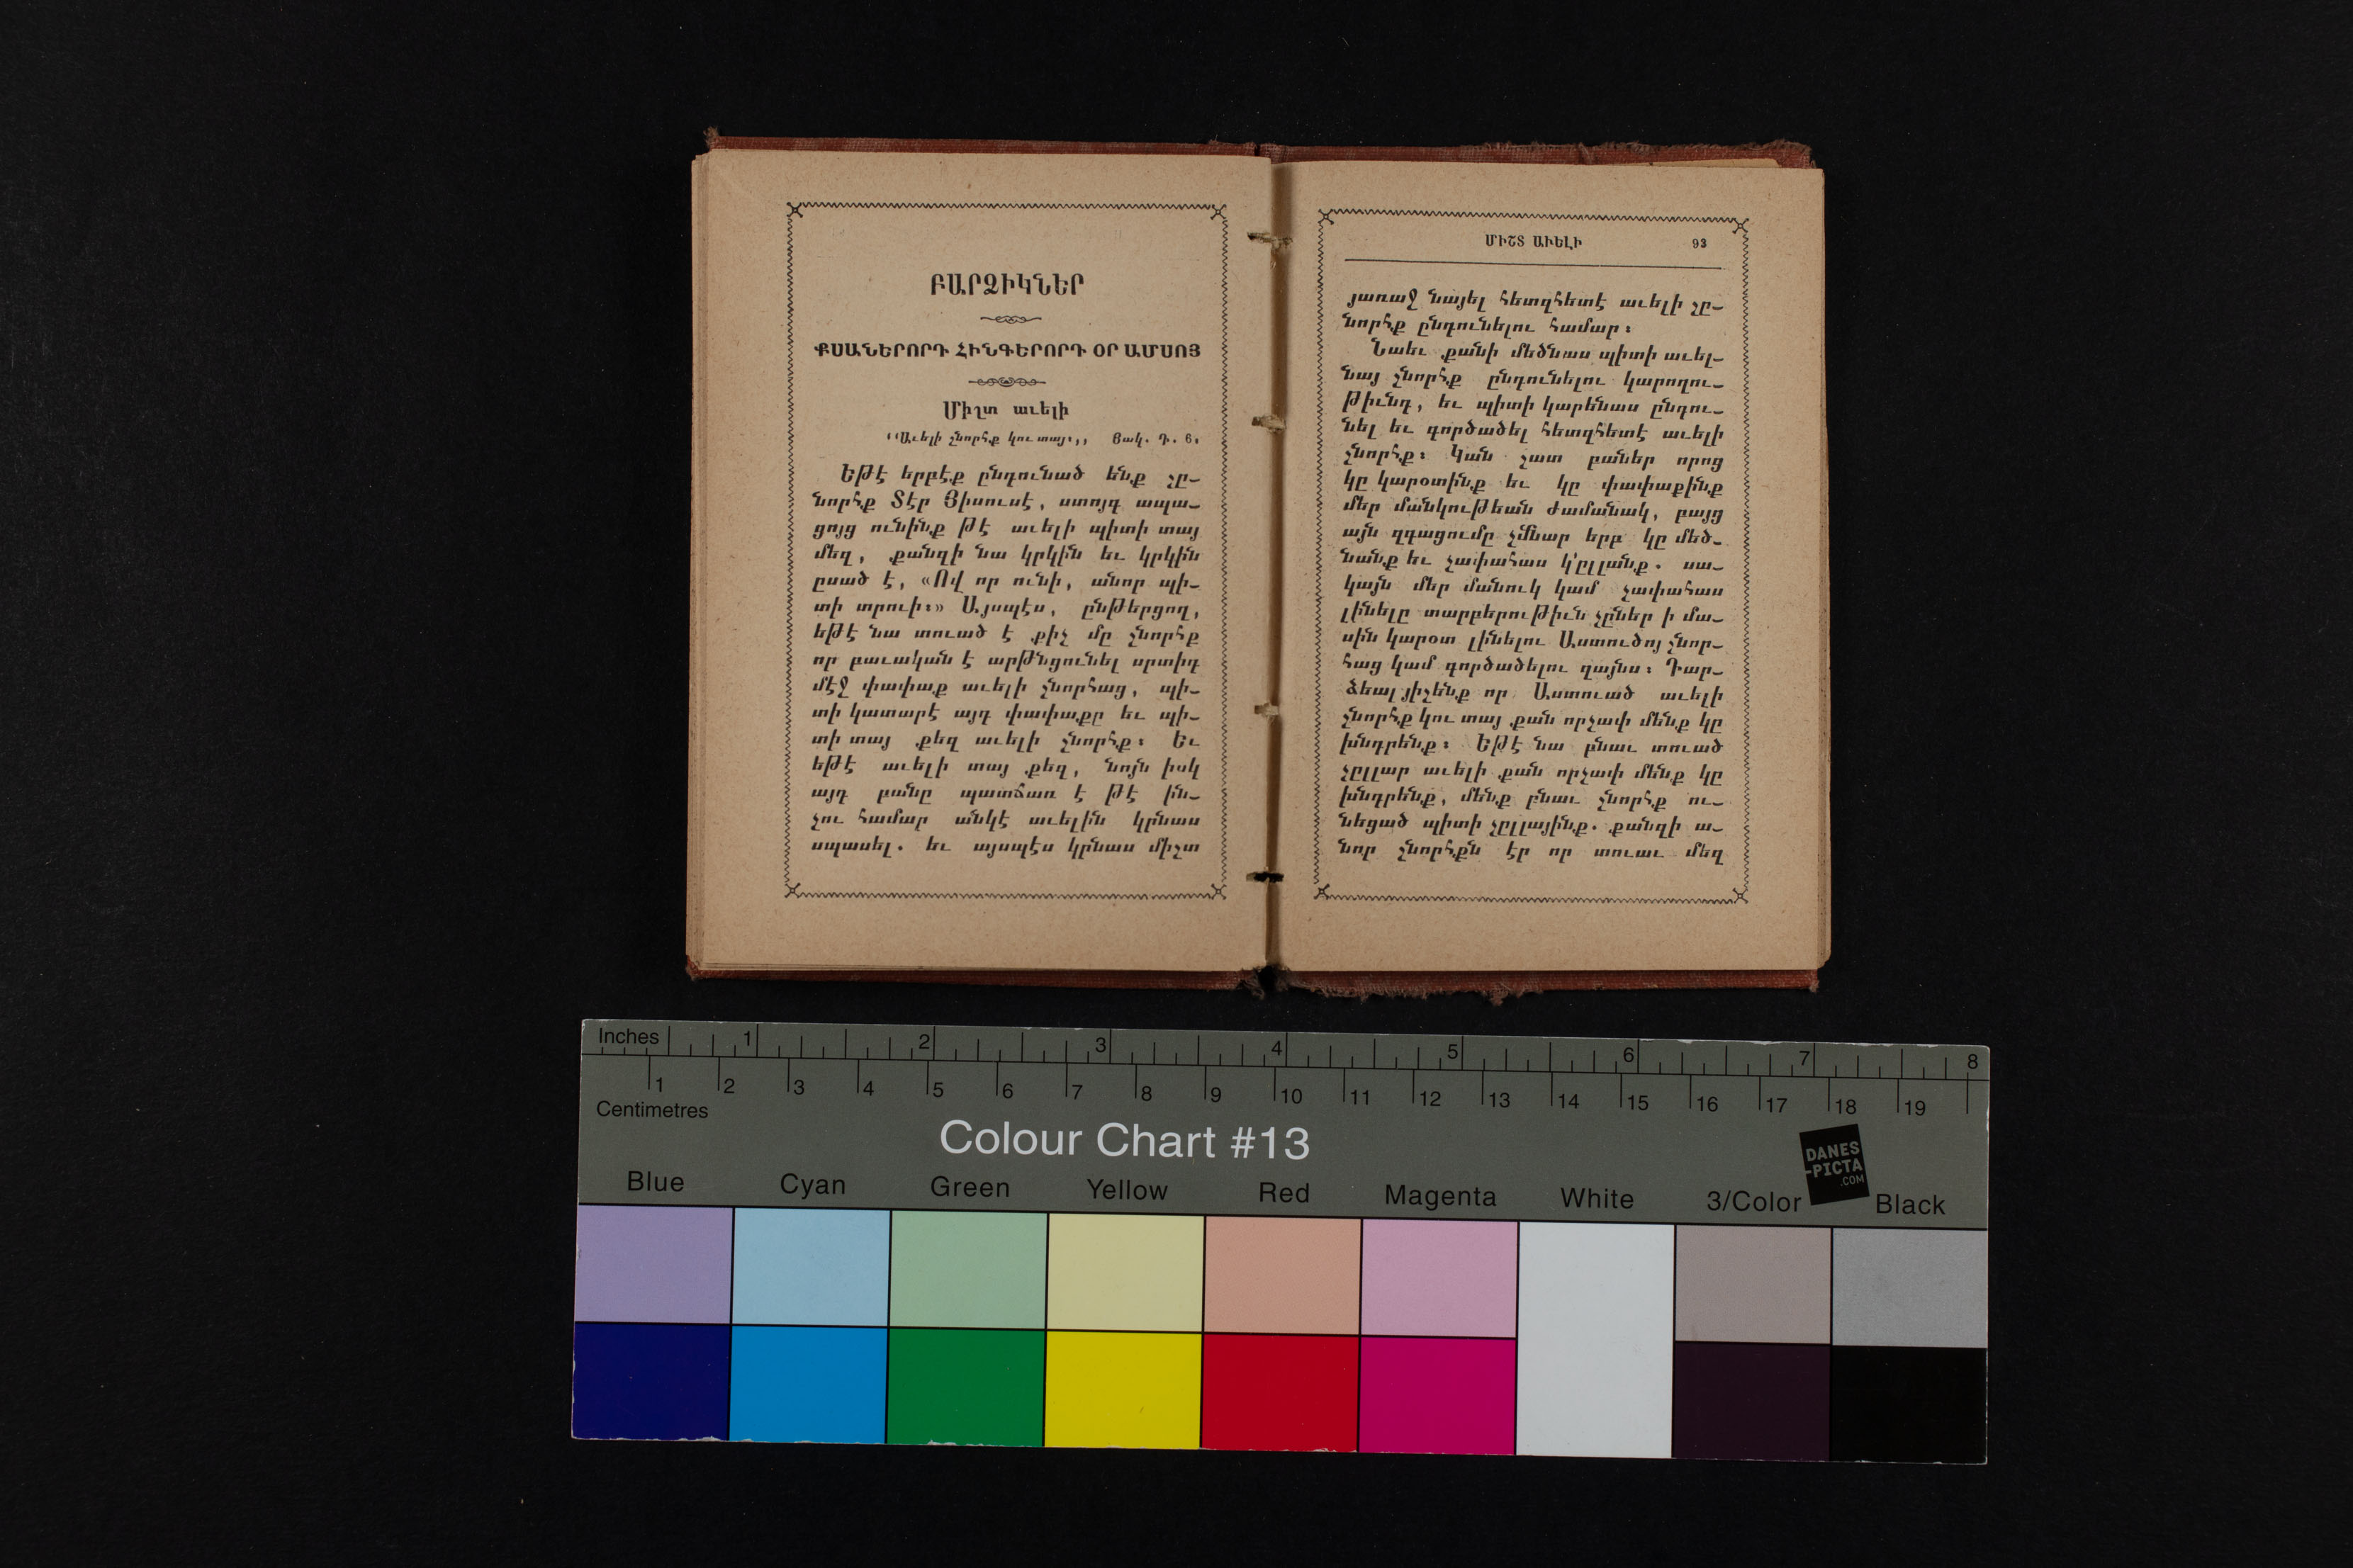 ԲԱՐՁԻԿՆԵՐ
ՔՍԱՆԵՐՈՐԴ ՀԻՆԳԵՐՈՐԴ ՕՐ ԱՄՍՈՅ
Միշտ աւելի
‘‘Աւելի շնորհք կու տայ,,, Յակ. Դ. 6։
Եթէ երբէք ընդունած ենք շը–
նորհք Տէր Յիսուսէ, ստոյգ ապա–
ցոյց ունինք թէ աւելի պիտի տայ
մեզ, քանզի նա կրկին եւ կրկին
ըսած է, «Ով որ ունի, անոր պի–
տի տրուի։» Այսպէս, ընթերցող,
եթէ նա տուած է քիչ մը շնորհք
որ բաւական է արթնցունել սրտիդ
մէջ փափաք աւելի շնորհաց, պի–
տի կատարէ այդ փափաքը եւ պի–
տի տայ քեզ աւելի շնորհք։ Եւ
եթէ աւելի տայ քեզ, նոյն իսկ
այդ բանը պատճառ է թէ ին–
չու համար անկէ աւելին կրնաս
սպասել. եւ այսպէս կրնաս միշտ
ՄԻՇՏ ԱՒԵԼԻ 93
յառաջ նայել հետզհետէ աւելի շը–
նորհք ընդունելու համար։
Նաեւ քանի մեծնաս պիտի աւել–
նայ շնորհք ընդունելու կարողու–
թիւնդ, եւ պիտի կարենաս ընդու–
նել եւ գործածել հետզհետէ աւելի
շնորհք։ Կան շատ բաներ որոց
կը կարօտինք եւ կը փափաքինք
մեր մանկութեան ժամանակ, բայց
այն զգացումը չմնար երբ կը մեծ–
նանք եւ չափահաս կ'ըլլանք. սա–
կայն մեր մանուկ կամ չափահաս
լինելը տարբերութիւն չըներ ի մա–
սին կարօտ լինելու Աստուծոյ շնոր–
հաց կամ գործածելու զայնս։ Դար–
ձեալ յիշենք որ Աստուած աւելի
շնորհք կու տայ քան որչափ մենք կը
խնդրենք։ Եթէ նա բնաւ տուած
չըլլար աւելի քան որչափ մենք կը
խնդրենք, մենք բնաւ շնորհք ու–
նեցած պիտի չըլլայինք. քանզի ա–
նոր շնորհքն էր որ տուաւ մեզ
Inches 1 2 3 4 5 6 7 8
1 2 3 4 5 6 7 8 9 10 11 12 13 14 15 16 17 18 19
Centimetres
Colour Chart #13
DANES
-PICTA
.COM
Blue Cyan Green Yellow Red Magenta White 3/Color Black